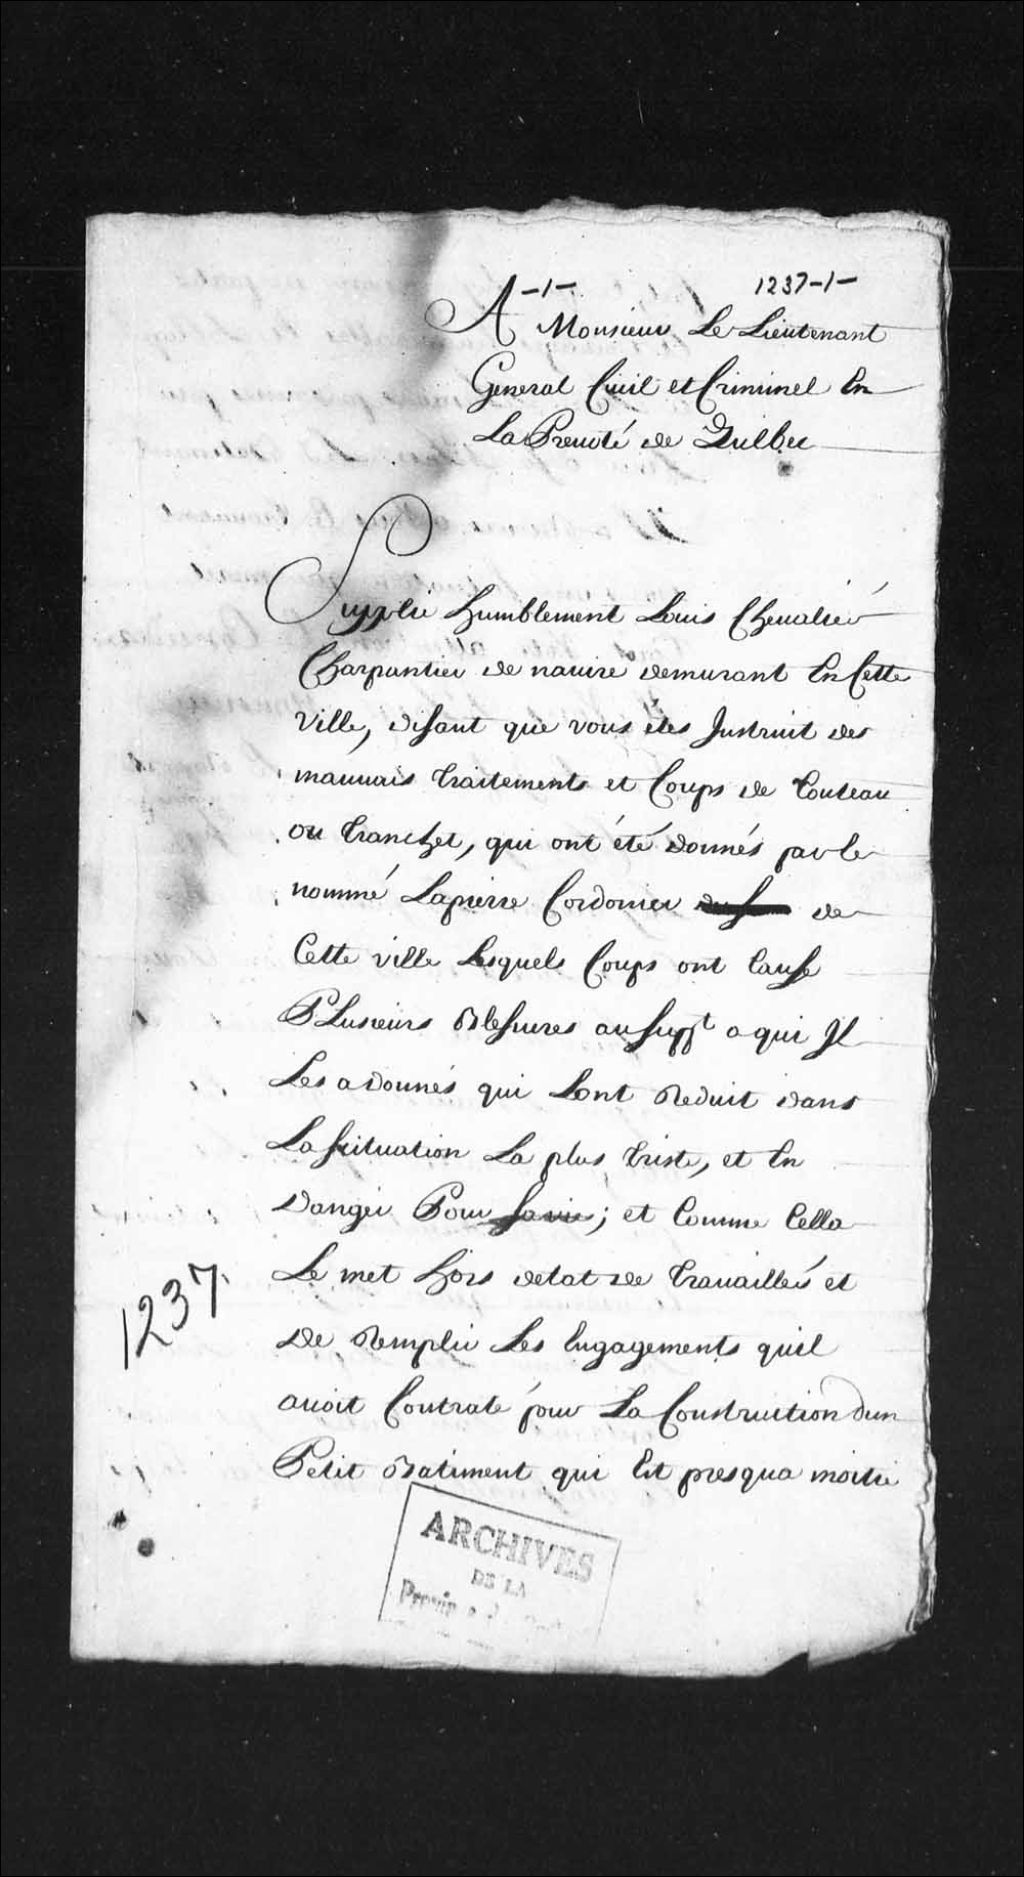 -1- 1237-1-
A Monsieur Le Lieutenant
General Ciuil et Criminel En
La Preuoté de Quibec
Supplie humblement Louis Cheualié
Charpantier de nauire demurant En Cette
Ville, disant que vous etes Instruit des
mauuais traitements et Coups de Couteau
ou tranchet, qui ont été donnés par le
nommé Lapierre Cordonier de
Cette ville Lesquels Coups ont Causé
PLusieurs Blessures au supt a qui Il
Les a donnés qui Lont Reduit dans
La scituation La plus triste, et En
Danger Pour sa vie; et Comme Cella
Le met hors detat de trauaillés et
De Remplir Les Engagements quil
auoit Contraté pour La Construction dun
Petit Batiment qui Est presqua moitié
1237.
ARCHIVES
DE LA